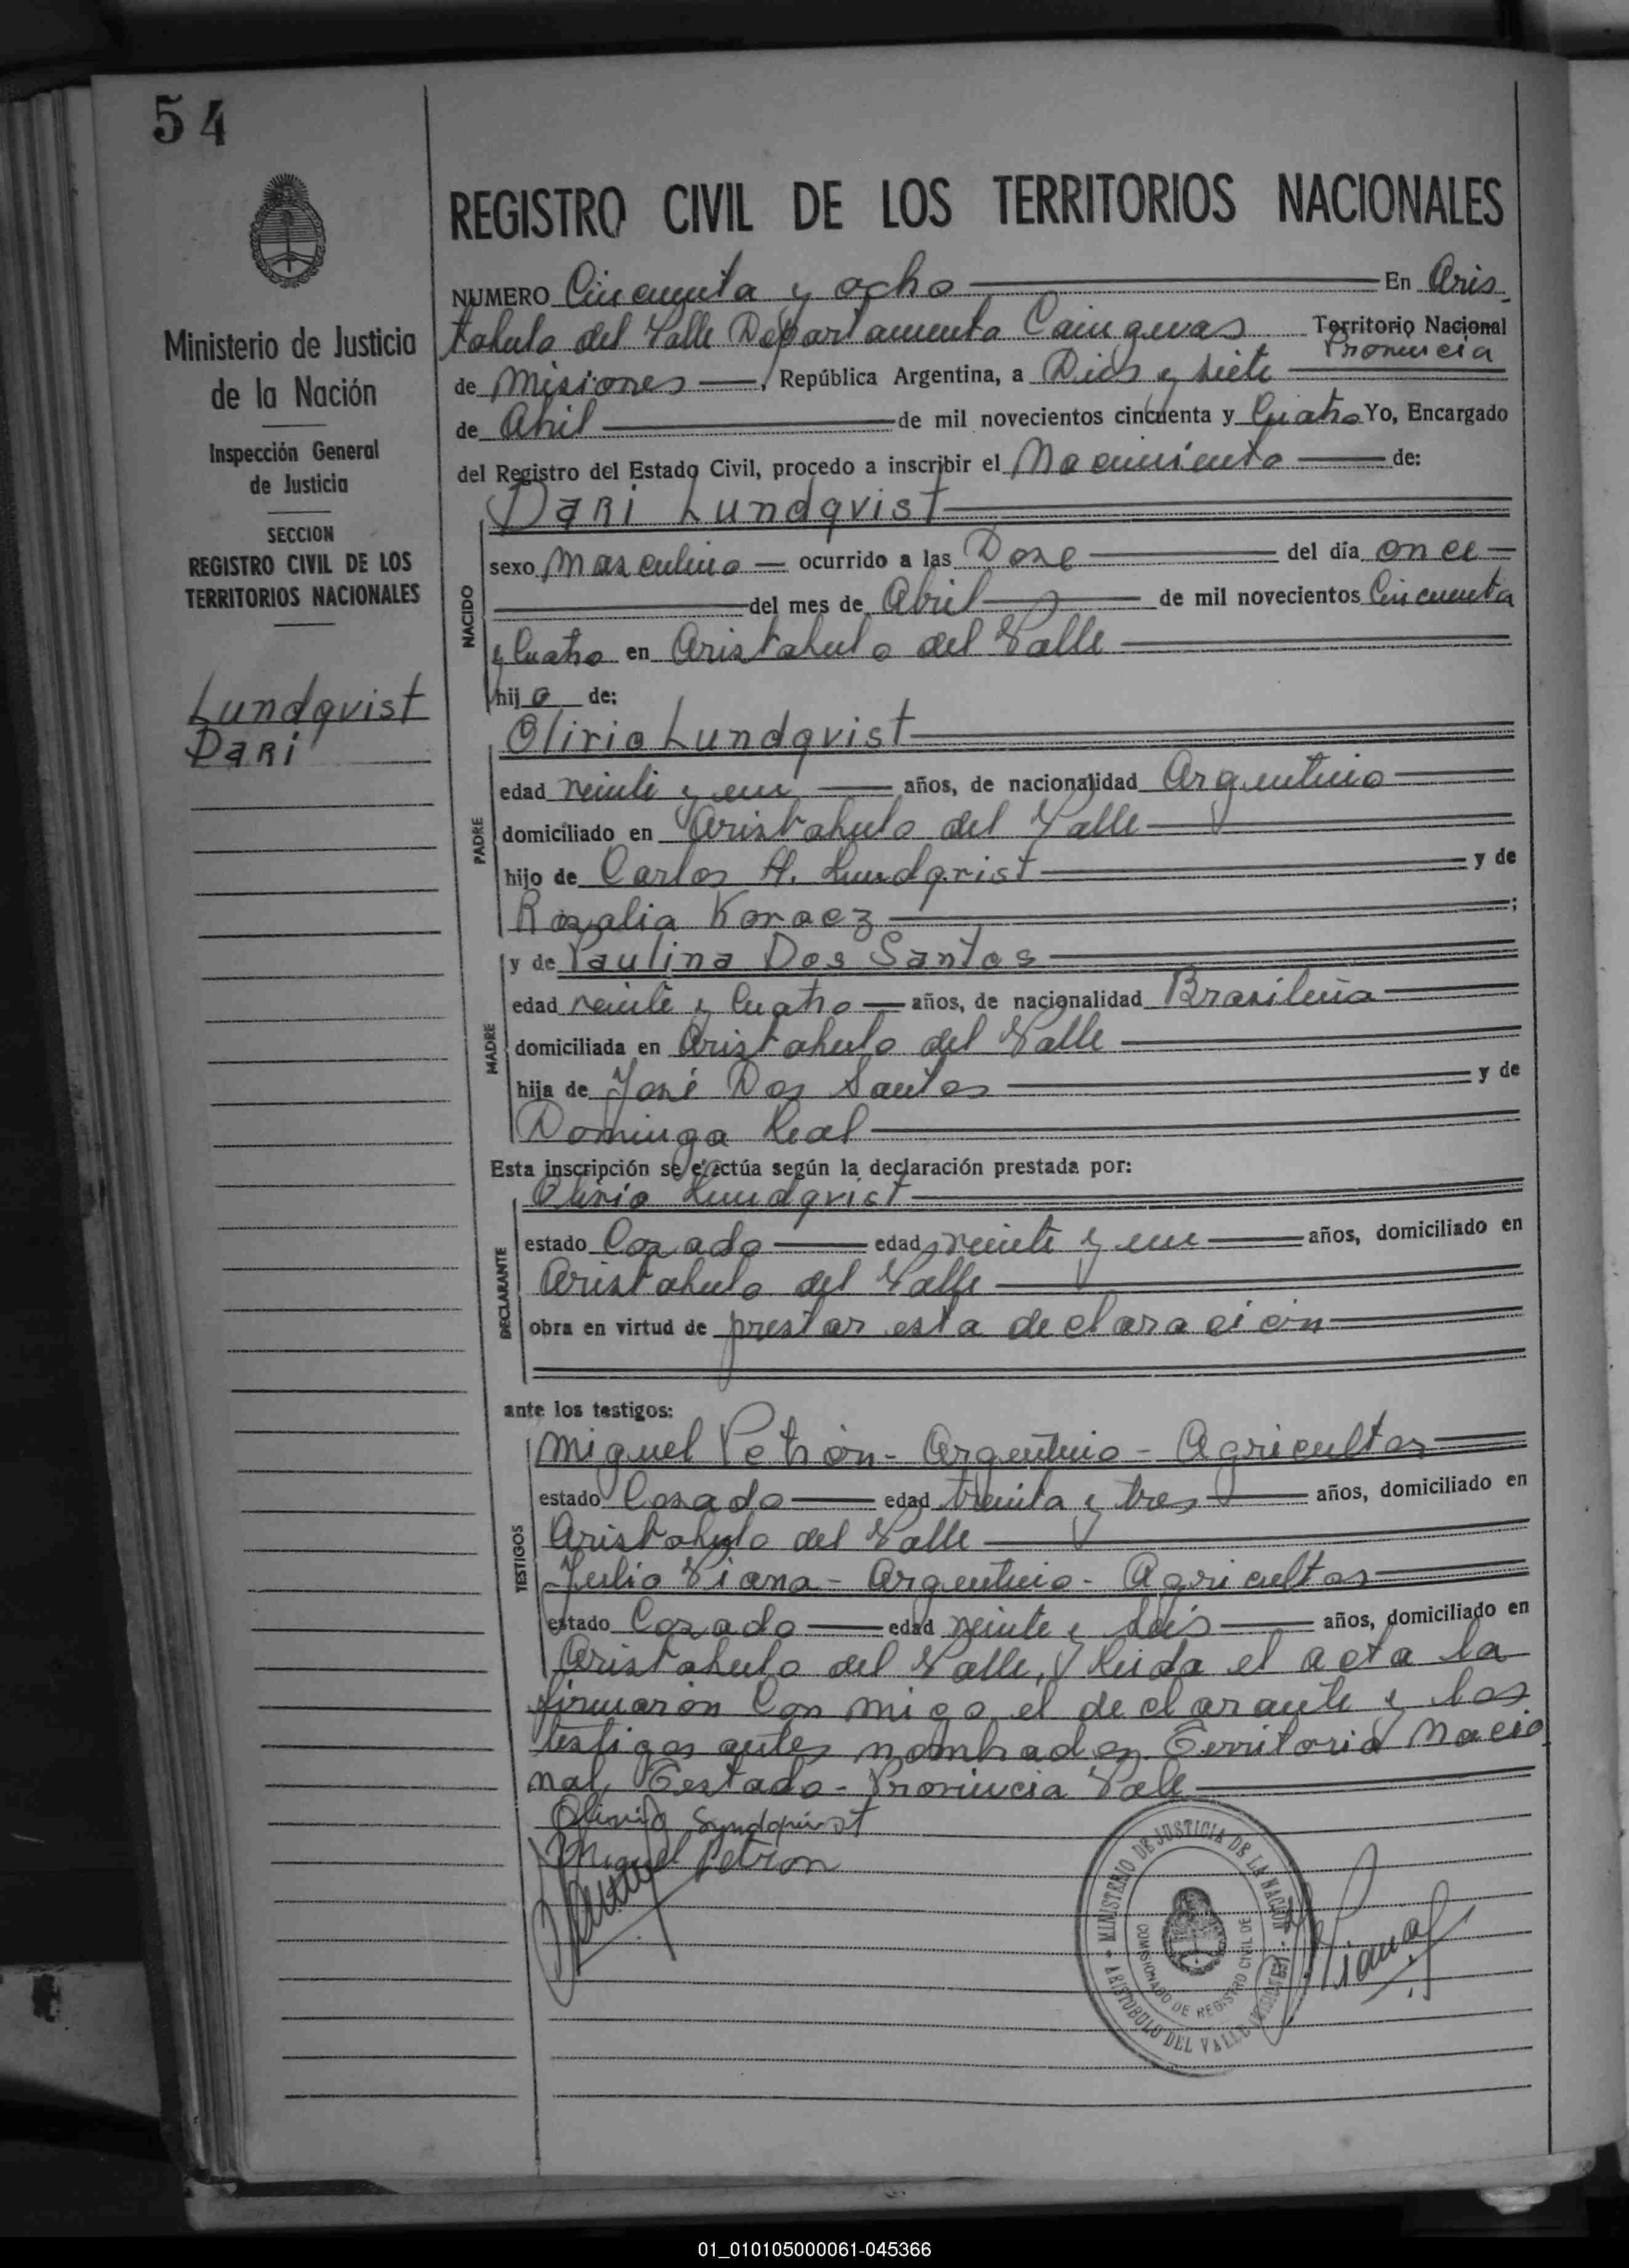 54
REGISTRO CIVIL DE LOS TERRITORIOS NACIONALES
Ministerio de Justicia
de la Nación
Inspección General
de Justicia
SECCION
REGISTRO CIVIL DE LOS
TERRITORIOS NACIONALES
Lundqvist
Dari
NUMERO Cincuenta y ocho En Aris
tobulo del Valle Departamento Cainguas Territorio Nacional
Provincia
de Misiones, República Argentina, a Diez y siete
de Abril de mil novecientos cincuenta y Cuatro Yo, Encargado
del Registro del Estado Civil, procedo a inscribir el Nacimiento de:
NACIDO
Dari Lundqvist
sexo masculino ocurrido a las Doze del día once
del mes de Abril de mil novecientos Cincuenta
y Cuatro en Aristobulo del Valle
hijo de:
PADRE
Olirio Lundqvist
edad veinti y un años, de nacionalidad Argentino
domiciliado en Aristobulo del Valle
hijo de Carlos A. Lundqvist y de
Rozalia Koraez;
MADRE
y de Paulina Dos Santos
edad veinte y Cuatro años, de nacionalidad Brazileña
domiciliada en Aristobulo del Valle
hija de José Dos Santos y de
Dominga Leal
Esta inscripción se efectúa según la declaración prestada por:
DECLARANTE
Olirio Lundqvist
estado Cazado edad veinte y un años, domiciliado en
Aristobulo del Valle
obra en virtud de prestar esta declaración
ante los testigos:
TESTIGOS
Miguel Petrón - Argentino - Agricultor
estado Cazado edad treinta y tres años, domiciliado en
Aristobulo del Valle
Julio Viana - Argentino - Agricultor
estado Cazado edad veinte y años, domiciliado en
Aristobulo del Valle, Leida el acta la
firmaron con migo el declarante y los
testigos antes nombrados. Territorio Nacio
nal, Testado - Provincia Vale
Olirio Lyndqvist
Miguel Petron
Viana
MINISTERIO DE JUSTICIA DE LA NACION
COMISIONADO DE REGISTRO CIVIL DE
ARISTOBULO DEL VALLE
01_010105000061-045366